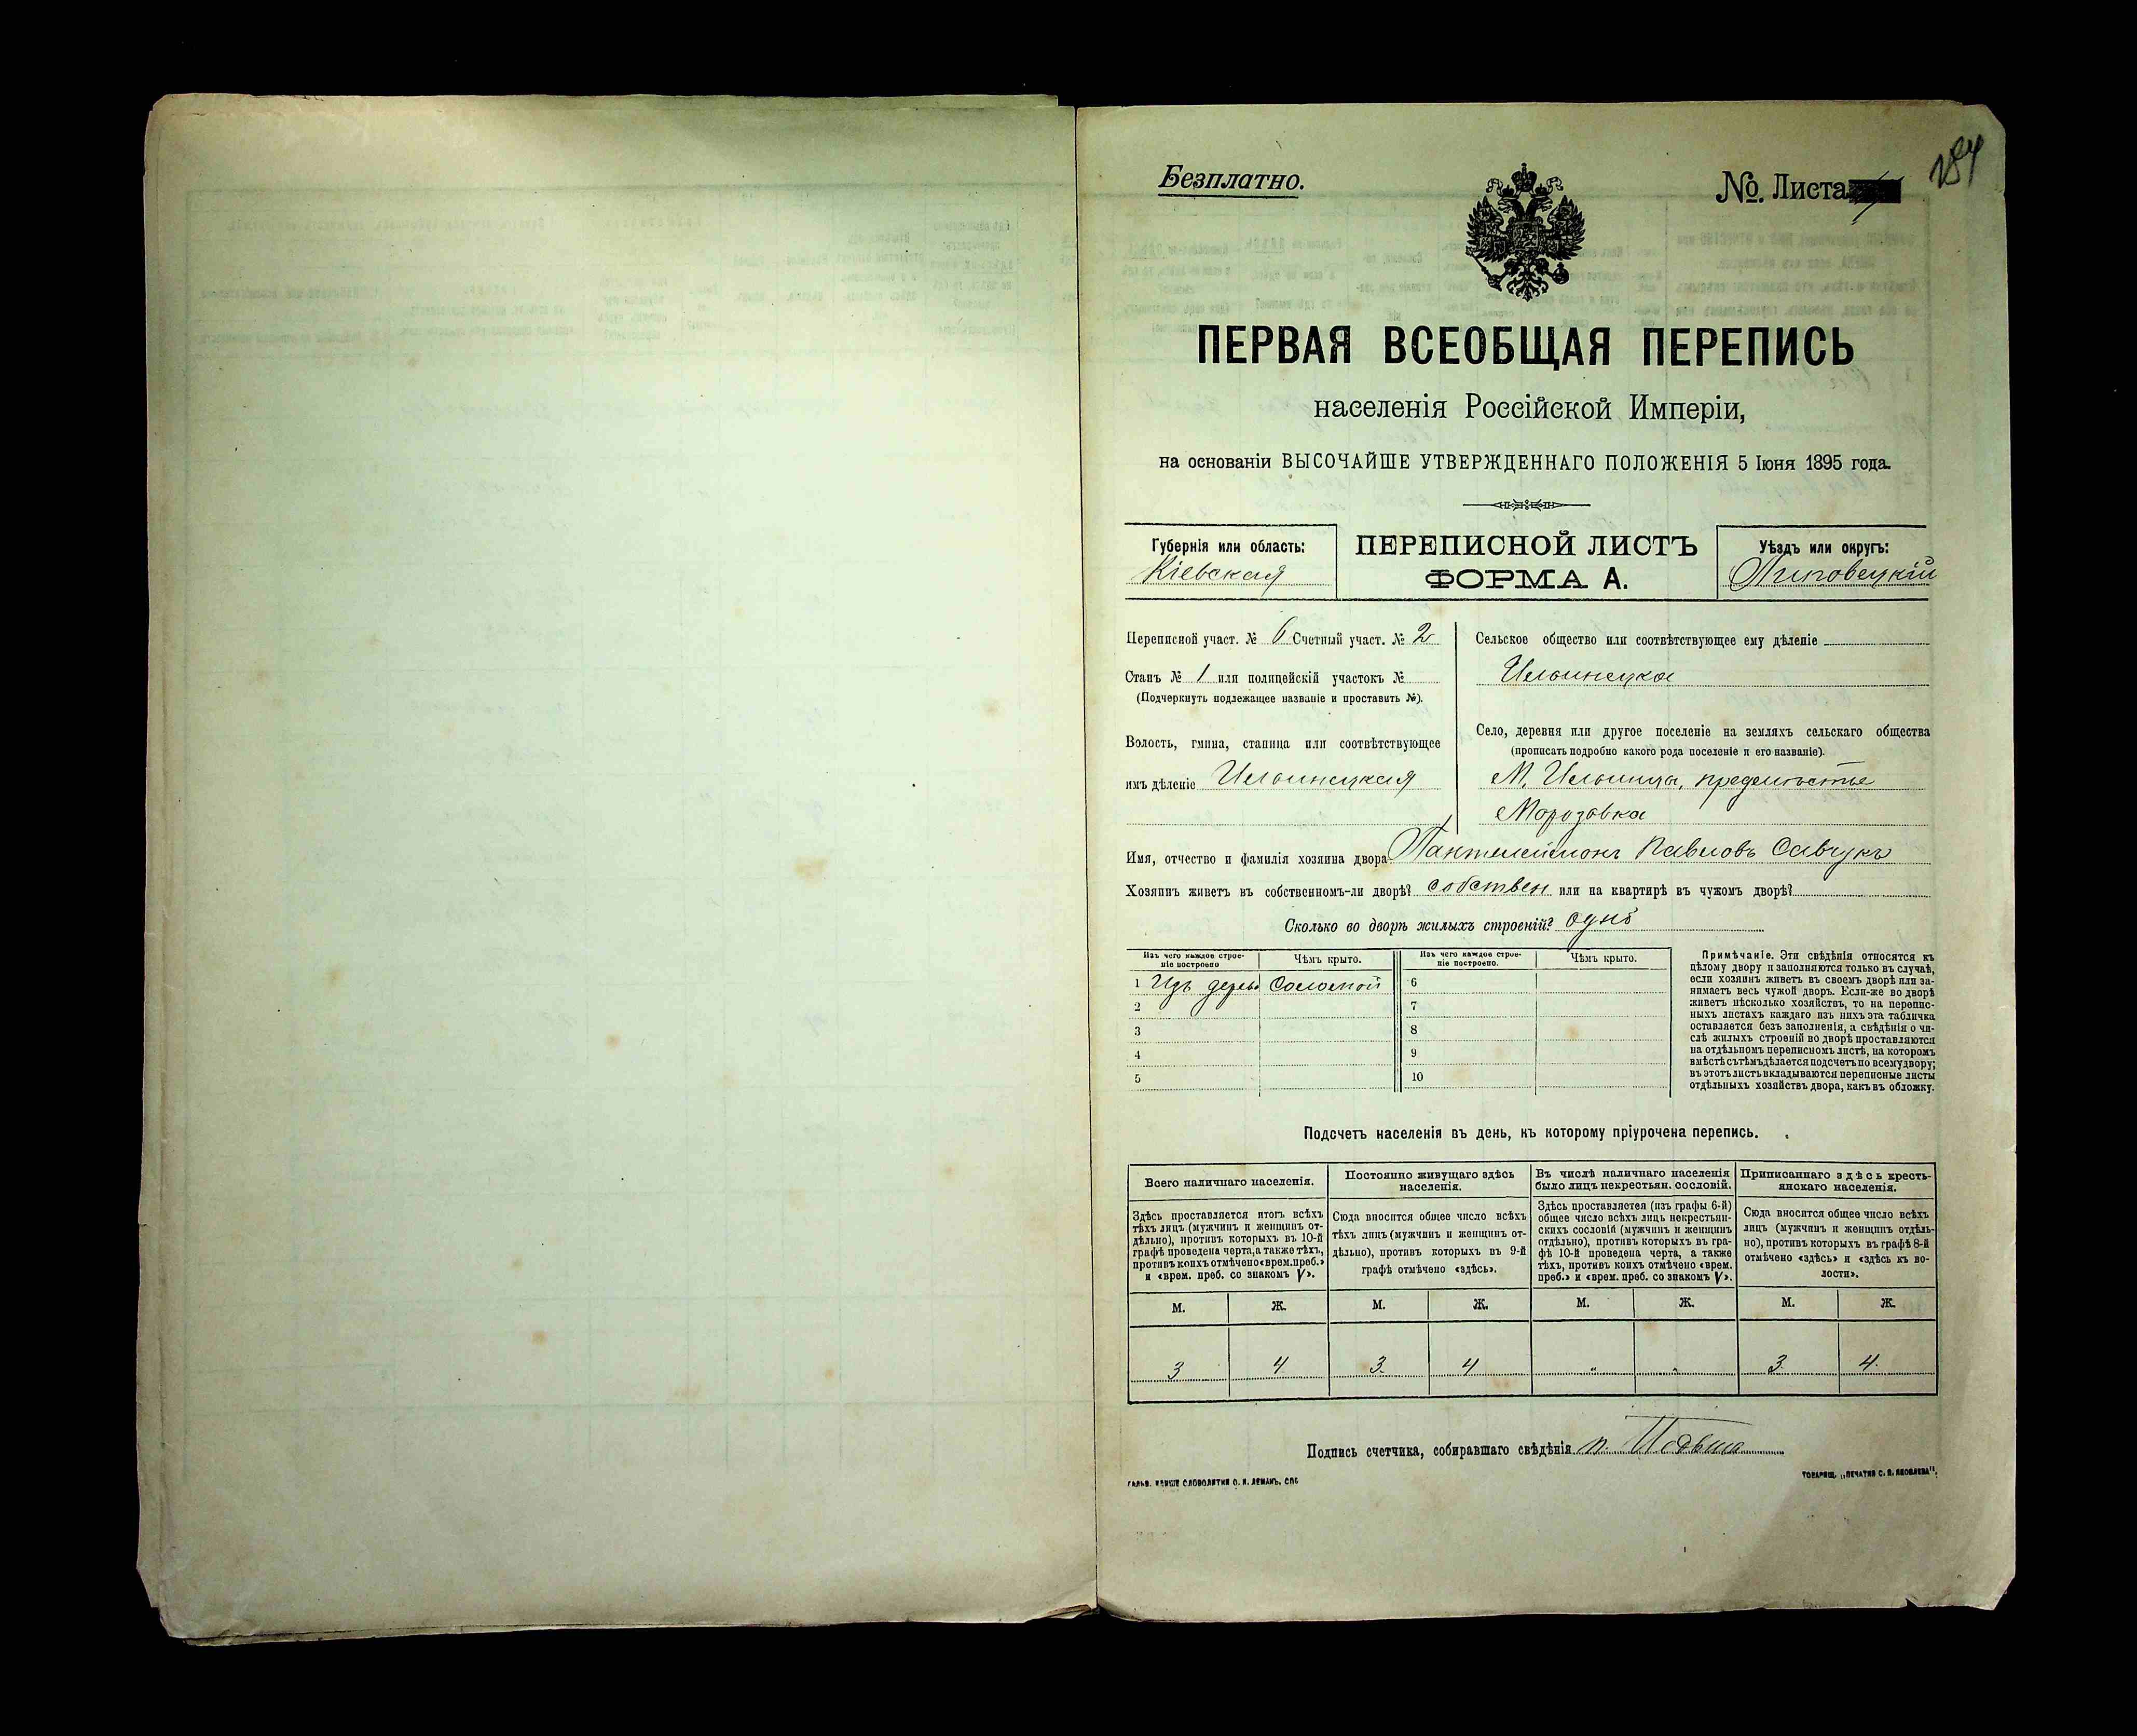 Безплатно.
№. Листа
ПЕРВАЯ ВСЕОБЩАЯ ПЕРЕПИСЬ
населенія Россійской Имперіи,
на основаніи ВЫСОЧАЙШЕ УТВЕРЖДЕННАГО ПОЛОЖЕНІЯ 5 Іюня 1895 года.
Губернія или область:
Кіевская
ПЕРЕПИСНОЙ ЛИСТЪ
ФОРМА А.
Уѣздъ или округъ:
Липовецкій
Переписной участ. № 6 Счетный участ. № 2
Станъ № 1 или полицейскій участокъ №
(Подчеркнуть подлежащее названіе и проставить №).
Волость, гмина, станица или соотвѣтствующее
имъ дѣленіе Ильинецкая
Сельское общество или соотвѣтствующее ему дѣленіе
Село, деревня или другое поселеніе на земляхъ сельскаго общества
(прописать подробно какого рода поселеніе и его названіе).
М. Ильинца, предмѣстье
Морозовка
Имя, отчество и фамилія хозяина двора Пантелеймонъ Павловъ Савчукъ
Хозяинъ живетъ въ собственномъ-ли дворѣ? собствен или на квартирѣ въ чужомъ дворѣ?
Сколько во дворѣ жилыхъ строеній? одно
Изъ чего каждое строе-
ніе построено
Чѣмъ крыто.
1 Изъ дерева Соломой
2
3
4
5
Изъ чего каждое строе-
ніе построено.
Чѣмъ крыто.
6
7
8
9
10
Примѣчаніе. Эти свѣдѣнія относятся къ
цѣлому двору и заполняются только въ случаѣ,
если хозяинъ живетъ въ своемъ дворѣ или за-
нимаетъ весь чужой дворъ. Если-же во дворѣ
живетъ нѣсколько хозяйствъ, то на перепис-
ныхъ листахъ каждаго изъ нихъ эта табличка
оставляется безъ заполненія, а свѣдѣнія о чи-
слѣ жилыхъ строеній во дворѣ проставляются
на отдѣльномъ переписномъ листѣ, на которомъ
вмѣстѣ съ тѣмъ дѣлается подсчетъ по всему двору;
въ этотъ листъ вкладываются переписные листы
отдѣльныхъ хозяйствъ двора, какъ въ обложку.
Подсчетъ населенія въ день, къ которому пріурочена перепись.
Всего наличнаго населенія.
Здѣсь проставляется итогъ всѣхъ
тѣхъ лицъ (мужчинъ и женщинъ от-
дѣльно), противъ которыхъ въ 10-й
графѣ проведена черта, а также тѣхъ,
противъ коихъ отмѣчено «врем. преб.»
и «врем. преб. со знакомъ V».
Постоянно живущаго здѣсь
населенія.
Сюда вносится общее число всѣхъ
тѣхъ лицъ (мужчинъ и женщинъ от-
дѣльно), противъ которыхъ въ 9-й
графѣ отмѣчено «здѣсь».
Въ числѣ наличнаго населенія
было лицъ некрестьян. сословій.
Здѣсь проставляется (изъ графы 6-й)
общее число всѣхъ лицъ некрестьян-
скихъ сословій (мужчинъ и женщинъ
отдѣльно), противъ которыхъ въ гра-
фѣ 10-й проведена черта, а также
тѣхъ, противъ коихъ отмѣчено «врем.
преб.» и «врем. преб. со знакомъ V».
Приписаннаго здѣсь кресть-
янскаго населенія.
Сюда вносится общее число всѣхъ
лицъ (мужчинъ и женщинъ отдѣль-
но), противъ которыхъ въ графѣ 8-й
отмѣчено «здѣсь» и «здѣсь къ во-
лости».
М. Ж. М. Ж. М. Ж. М. Ж.
3 4 3. 4 " " 3. 4.
Подпись счетчика, собиравшаго свѣдѣнія
СЛОВОЛИТНИ О. И. ЛЕМАНЪ. СПБ
ТОВАРИЩ. „ПЕЧАТНЯ С. П. ЯКОВЛЕВА".